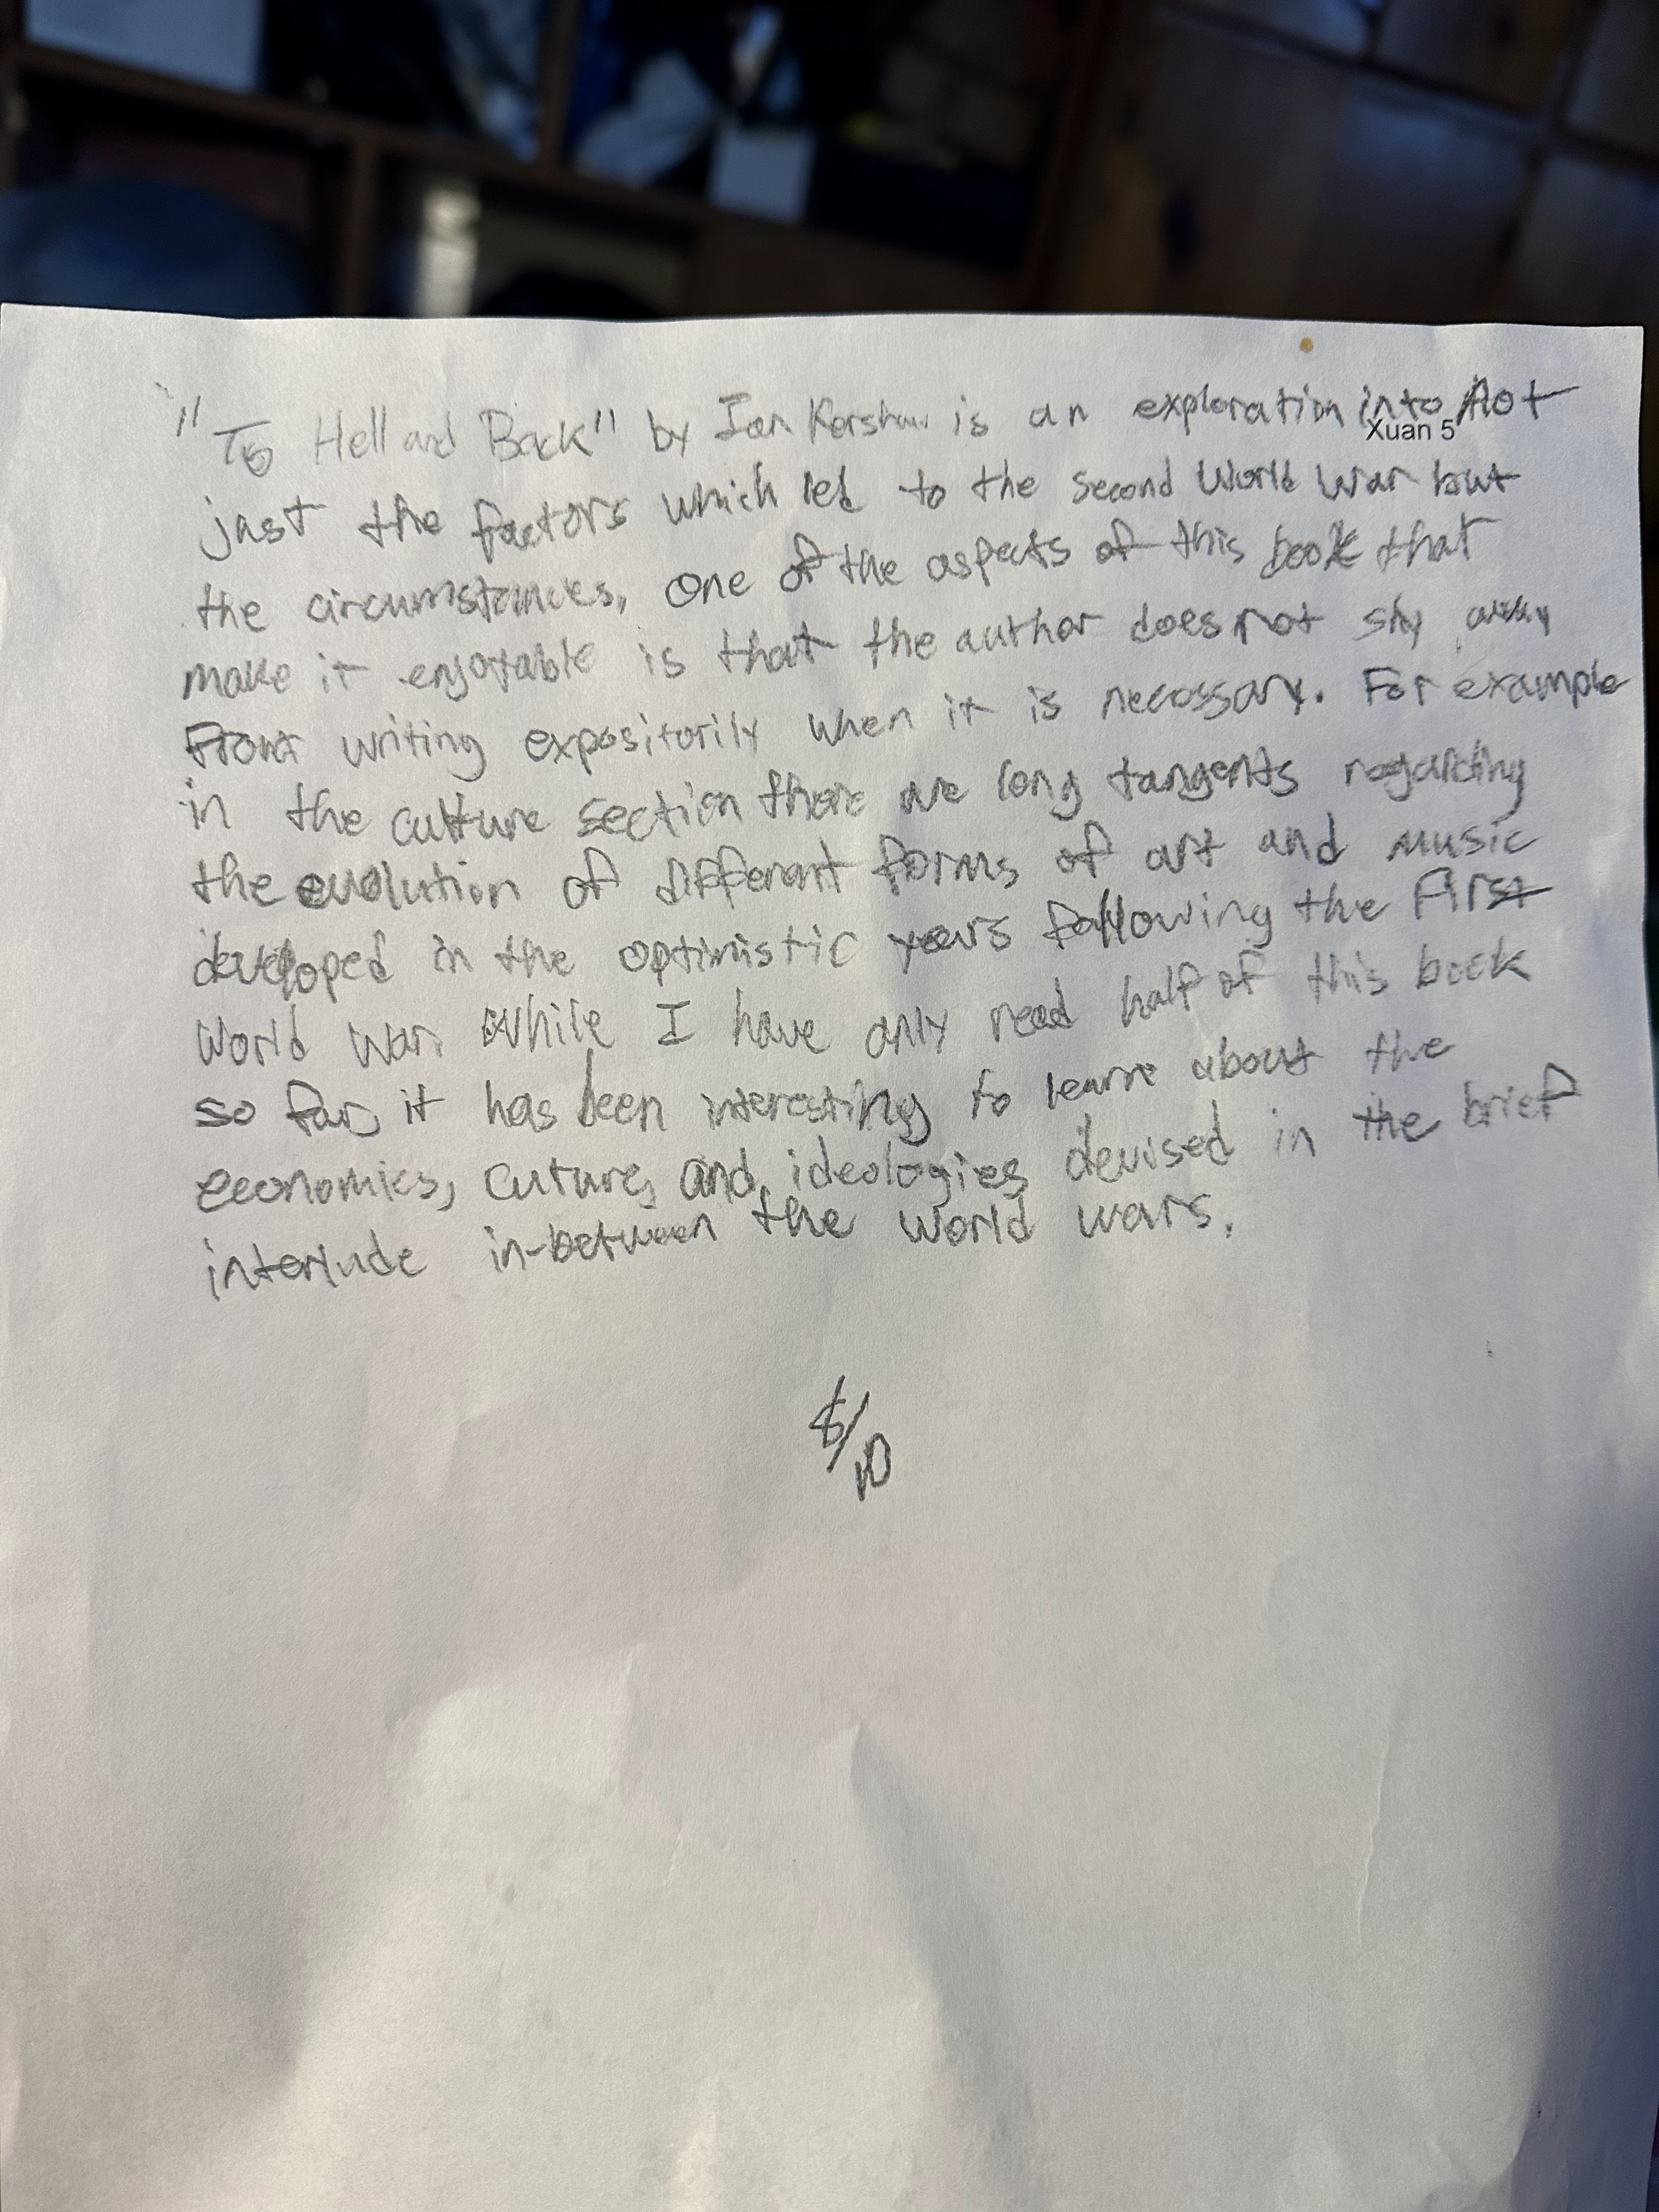 "To Hell and Back" by Ian Kershaw is an exploration into not
Xuan 5
just the factors which led to the second World War but
the circumstances, One of the aspects of this book that
make it enjoyable is that the author does not shy away
from writing expositorily when it is necessary. For example
in the culture section there are long tangents regarding
the evolution of different forms of art and music
developed in the optimistic years following the First
World War. While I have only read half of this book
so far, it has been interesting to learn about the
economics, cuture, and ideologies devised in the brief
interlude in-between the world wars.
/10